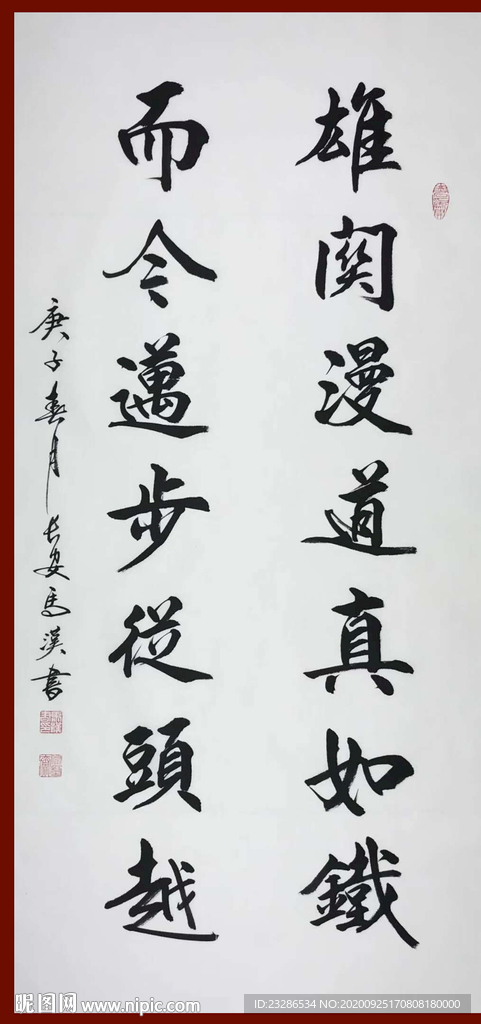 雄関漫道真如鐵
而今邁步從頭越
庚子春月長安馬漢書
昵图网 www.nipic.com
ID:23286534 NO:20200925170808180000